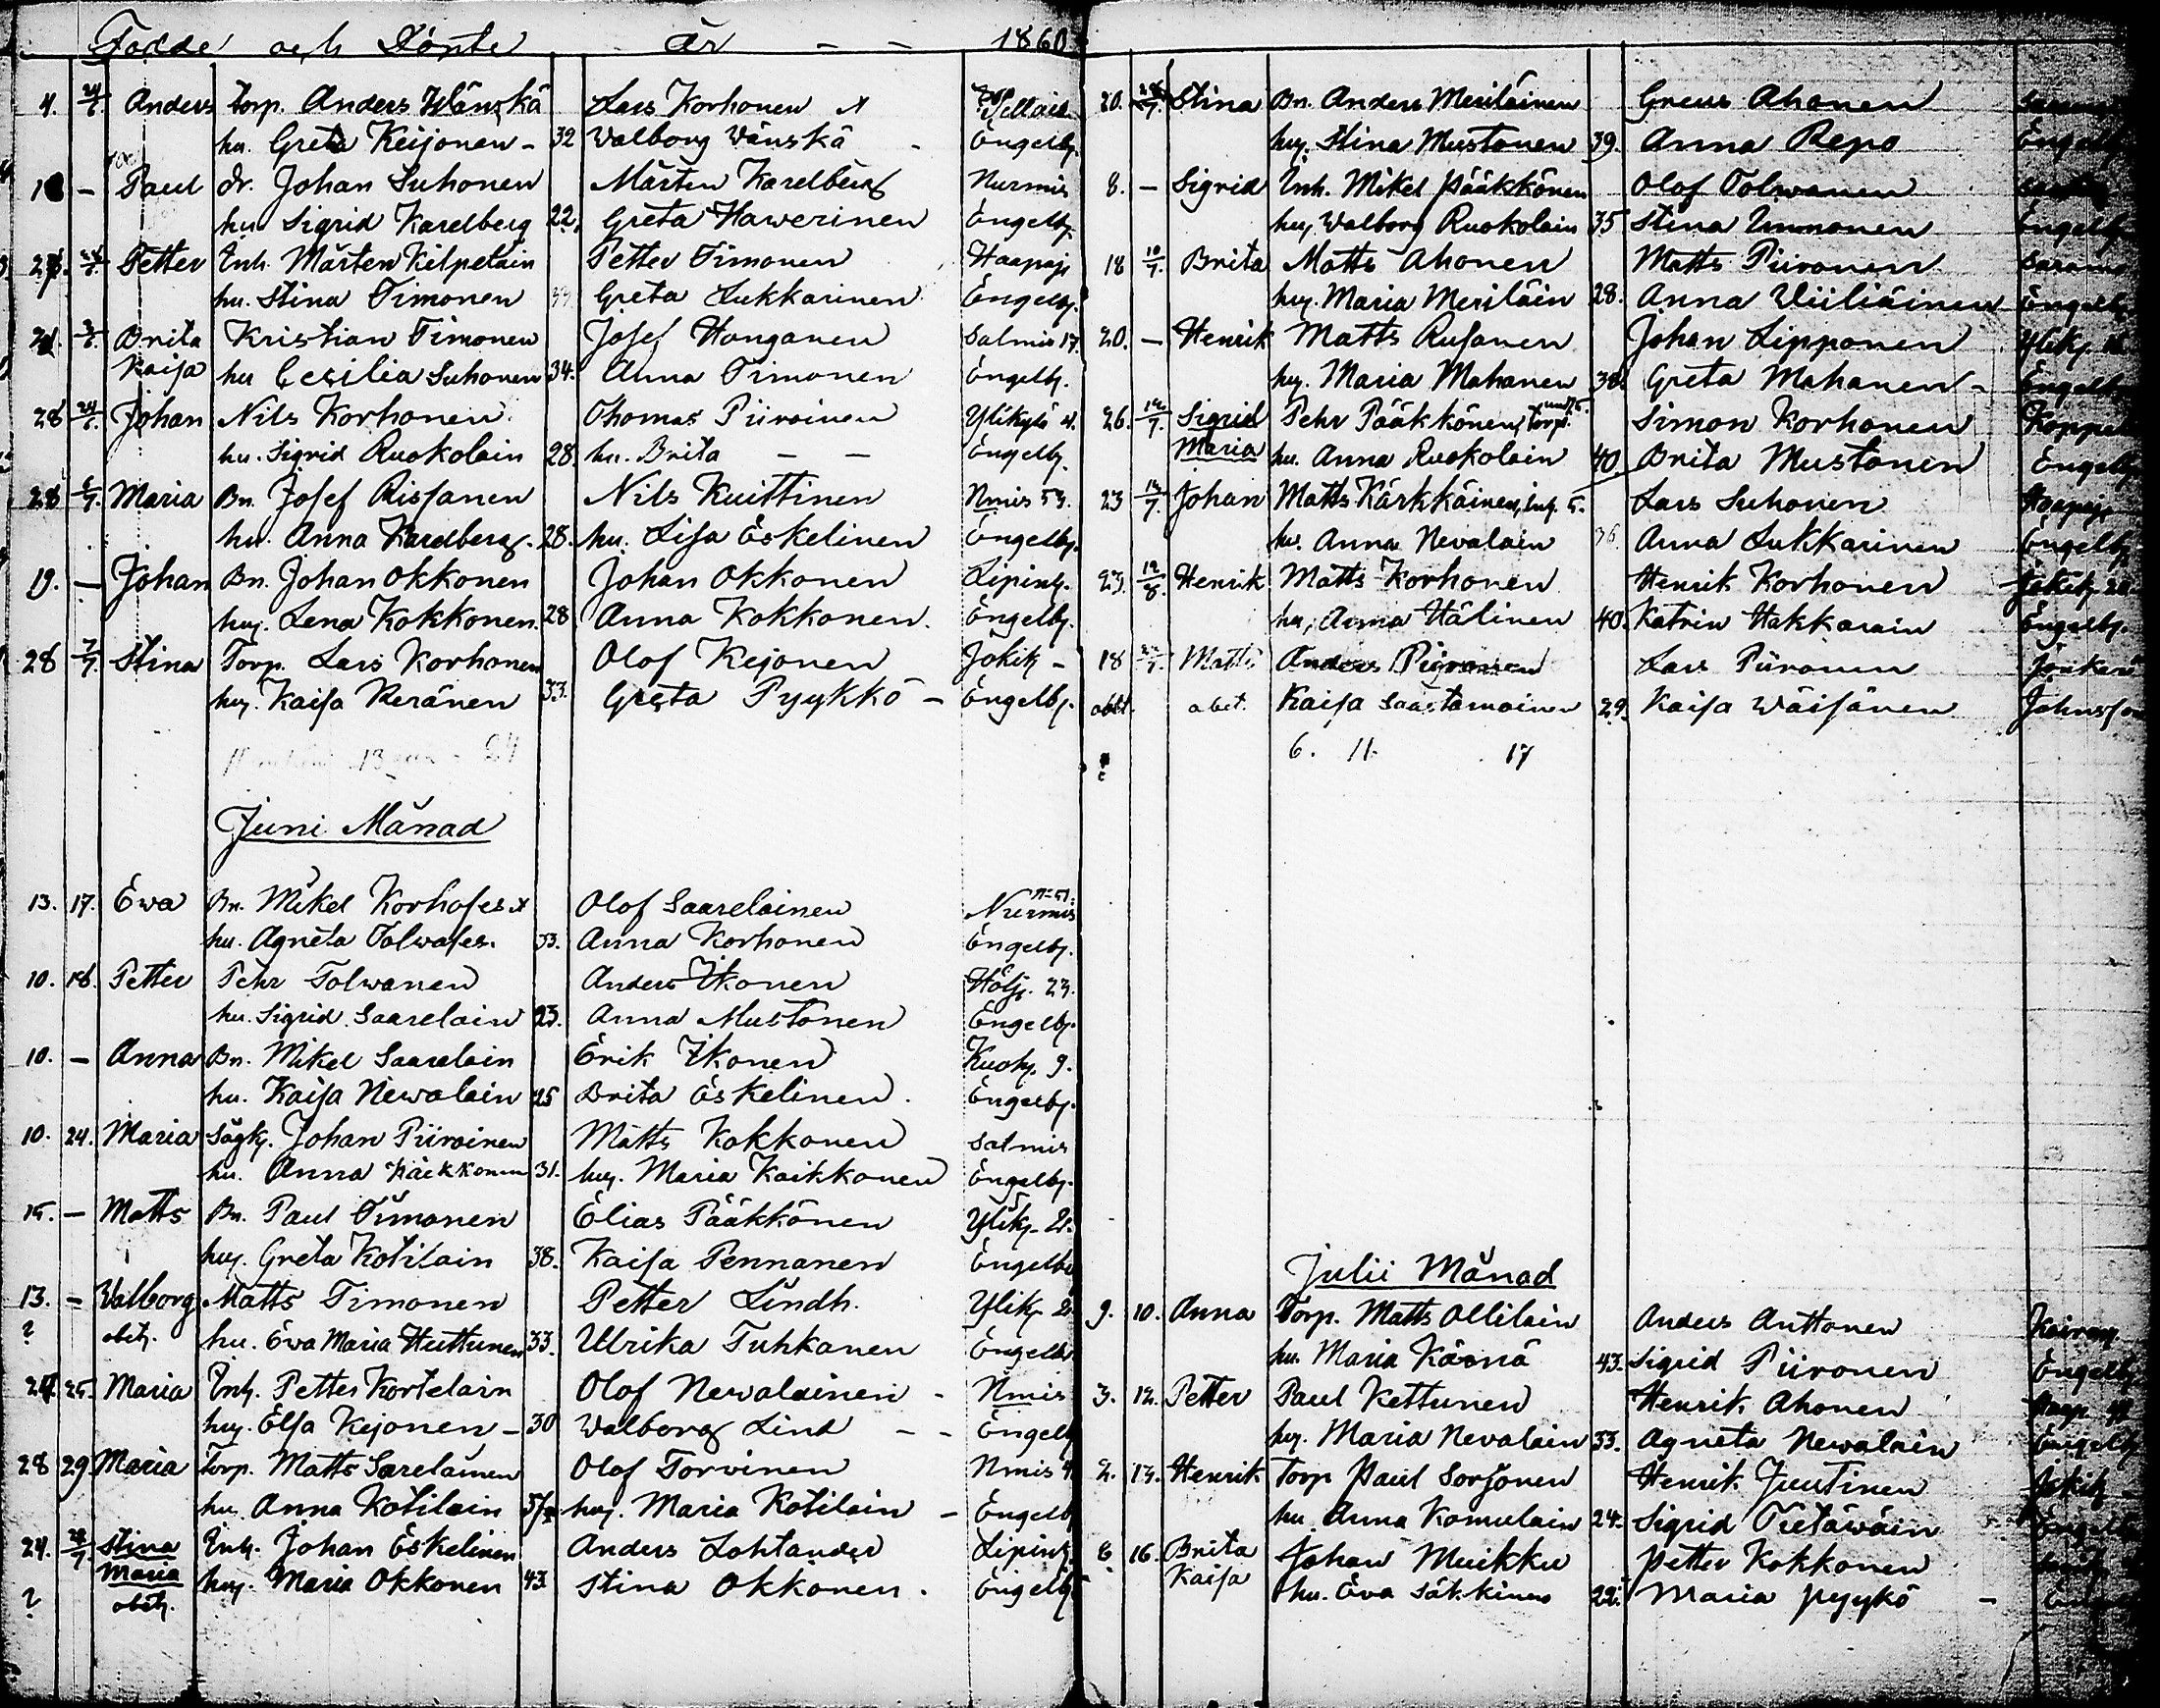 Fodde och Dönte år - - 1860
4. 24/7. Anders Torp. Anders Wänskä Lars Korhonen
hu. Greta Keijonen - 32 Walborg Wänskä - Engelbj.
18 - Paul dr. Johan Suhonen Mårten Karelberg Nurmis
hu Sigrid Karelberg 22, Greta Hawerinen Engelbj.
24/7. Petter Inh. Mårten Kilpelain Petter Timonen Haapaj.
hu. Stina Timonen Greta Sukkarinen Engelbj.
Brita Kristian Timonen Josef Honganen Salmis 17.
Kaisa hu Cecilia Suhonen 34. Anna Timonen Engelbj.
28 24/7. Johan Nils Korhonen Thomas Piiroinen Ylikylä 4.
hu. Sigrid Ruokolain 28. hu. Brita - - Engelbj.
28 6/7. Maria Bn. Josef Rissanen Nils Kuittinen Nmis 53.
hu. Anna Karelberg. 28. hu. Lisa Eskelinen Engelbj.
19. - Johan Bn. Johan Okkonen Johan Okkonen Lipinlj.
huj. Lena Kokkonen. 28 Anna Kokkonen. Engelbj.
28 7/7. Stina Torp. Lars Korhonen Olof Kejonen Jokikj -
huj. Kaisa Keränen 33. Greta Pyykkö - Engelbj.
Juni Månad
13. 17. Ewa Bn. Mikel Korhoses Olof Saarelainen N=51. Nurmis
hu. Agneta Tolwases. 33. Anna Korhonen Engelbj.
10. 18. Petter Pehr Tolwanen Anders Ikonen Hölj. 23.
hu. Sigrid Saarelain 23. Anna Mustonen Engelbj.
10. - Anna Bn. Mikel Saarelain Erik Ikonen Kuohj. 9.
hu. Kaisa Newalain 25 Brita Eskelinen. Engelbj.
10. 24. Maria Sågkj. Johan Piiroinen Matts Kokkonen Salmis
hu. Anna Pääkkönen 31. huj. Maria Kaikkonen Engelbj.
15. - Matts Bn. Paul Timonen Elias Pääkkönen Ylikj. 21.
huj. Greta Kotilain 38. Kaisa Pennanen Engelbj
13. - Walborg Matts Timonen Petter Lindh. Ylikj 2
? obetj. hu. Ewa Maria Huttunen 33. Ulrika Tuhkanen Engelb
24. 25. Maria Inh. Petter Kortelain Olof Newalainen - Nmis
huj. Elsa Kejonen - 30 Walborg Lind - - Engelb
28 29 Maria Torp. Matts Sareläinen Olof Torvinen Nmis 4
hu. Anna Kotilain huj. Maria Kotilain - Engelb
24. 28/7 Stina Inh. Johan Eskelinen Anders Lohtander Lipinlj.
Maria huj. Maria Okkonen 43. Stina Okkonen. Engelbj
? obetj.
20. Stina Bn. Anders Meriläinen Greus Ahonen
huj. Stina Mustonen 39. Anna Repo Engelbj
8. - Sigrid Inh. Mikel Pääkkönen Olof Tolwanen
huj. Walborg Ruokolain 35 Stina Immonen Engelbj
18 10/7. Brita Matts Ahonen Matts Piironen Saramo
huj. Maria Meriläin 28. Anna Wiiliäinen Engelbj
20. - Henrik Matts Rusanen Johan Lipponen Ylikj.
hj. Maria Mahanen 38. Greta Mahanen - Engelbj
26. 12/7. Sigrid Pehr Pääkkönen, Torp. Simon Korhonen
Maria hu. Anna Ruokolain 40. Brita Mustonen Engelbj
23 13/7. Johan Matts Kärkkäinen, Lars Suhonen Haapaj.
hu. Anna Nevalain 36. Anna Sukkarinen Engelbj
23. 12/8. Henrik Matts Korhonen Henrik Korhonen
hu, Anna Hälinen 40. Katrin Hakkarain Engelbj.
18 Matts Anders Piironen Lars Piironen Jonkeri
obet. obet. Kaisa Saastamoinen 29. Kaisa Wäisänen
6. 11. 17
Julii Månad
9. 10. Anna Torp. Matts Ollilain Anders Anttonen
hu. Maria Kärnä 43. Sigrid Piironen Engelbj
3. 12. Petter Paul Kettunen Henrik Ahonen
huj. Maria Nevalain 33. Agneta Newalain Engelbj
2. 13. Henrik Torp Paul Sorjonen Henrik Juutinen Jokikj
hu. Anna Komulain 24. Sigrid Tietäwäin Engelb
6 16. Brita Johan Muikku Petter Kokkonen
Kaisa hu. Ewa Säkkinen 22. Maria Pyykö -